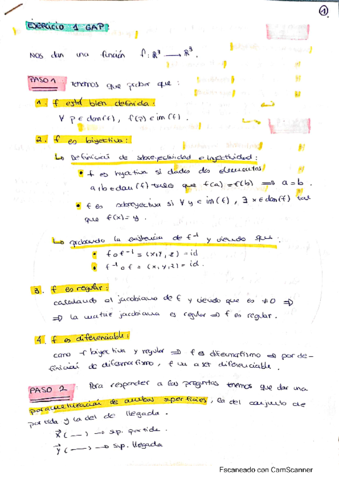 ①
EJERCICIO 1 GAP:
NOS dan una función f: ℝ³ → ℝ³.
PASO 1 Tenemos que probar que:
1. f está bien definida:
∀ p ∈ dom(f), f(p) ∈ im(f)
2. f es biyectiva:
↳ Definición de sobreyectividad e inyectividad:
• f es inyectiva si dados dos elementos
a, b ∈ dom(f) tales que f(a) = f(b) ⟹ a = b.
• f es sobreyectiva si ∀ y ∈ im(f), ∃ x ∈ dom(f) tal
que f(x) = y.
↳ probando la existencia de f⁻¹ y viendo que
• f o f⁻¹ = (x, y, z) = id
• f⁻¹ o f = (x, y, z) = id.
3. f es regular:
calculando el jacobiano de f y viendo que es ≠ 0 ⟹
⟹ la matriz jacobiana es regular ⟹ f es regular.
4. f es diferenciable:
como f biyectiva y regular ⟹ f es difeomorfismo ⟹ por de-
finición de difeomorfismo, f es diferenciable.
PASO 2 Para responder a las preguntas tenemos que dar una
parametrización de ambas superficies, la del conjunto de
partida y la del de llegada.
x⃗ (—) → sup. partida
y⃗ (—) → sup. llegada
Escaneado con CamScanner